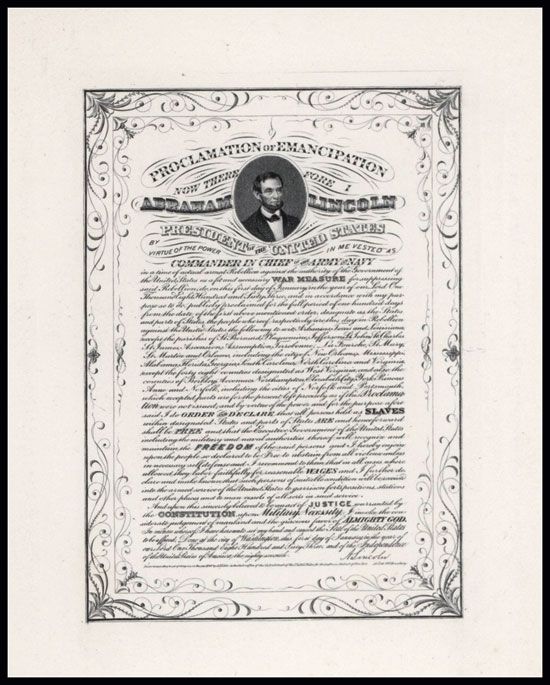 PROCLAMATION OF EMANCIPATION
NOW THERE FORE I
ABRAHAM LINCOLN
PRESIDENT OF THE UNITED STATES
BY VIRTUE OF THE POWER IN ME VESTED AS
COMMANDER IN CHIEF OF THE ARMY AND NAVY
in a time of actual armed Rebellion against the authority of the Government of
the United States as a fit and necessary WAR MEASURE for suppressing
said Rebellion, do, on this first day of January, in the year of our Lord One
Thousand Eight Hundred and Sixty three, and in accordance with my pur-
pose so to do, publicly proclaimed for the full period of one hundred days
from the date of the first above mentioned order, designate as the States
and parts of States, the people whereof respectively are this day in Rebellion
against the United States the following to wit; Arkansas, Texas and Louisiana
except the parishes of St Bernard, Plaquemines, Jefferson, St John, St Charles
St James, Ascension, Assumption, Terrebonne, La Fourche, St Mary,
St Martin and Orleans, including the city of New Orleans, Mississippi
Alabama, Florida, Georgia, South Carolina, North Carolina and Virginia
except the forty eight counties designated as West Virginia, and also the
counties of Berkley, Accomac, Northampton, Elizabeth City, York, Princess
Anne and Norfolk, including the cities of Norfolk and Portsmouth,
which excepted parts are for the present left precisely as if this Proclama
tion were not issued; and by virtue of the power and for the purpose afore
said I do ORDER AND DECLARE that all persons held as SLAVES
within designated States and parts of States ARE and henceforward
shall be FREE and that the Executive Government of the United States
including the military and naval authorities thereof will recognize and
maintain the FREEDOM of the said persons and I hereby enjoin
upon the people so declared to be Free to abstain from all violence unless
in necessary self defense and I recommend to them that in all cases where
allowed, they labor faithfully for reasonable WAGES and I further de
clare and make known that such persons of suitable condition will be received
into the armed service of the United States to garrison forts, positions, stations
and other places and to man vessels of all sorts in said service.
And upon this sincerely believed to be an act of JUSTICE warranted by
the CONSTITUTION upon Military Necessity I invoke the con-
siderate judgement of mankind and the gracious favor of ALMIGHTY GOD.
In witness whereof I have hereunto set my hand and caused the Seal of the United States
to be affixed. Done at the city of Washington this first day of January in the year of
our Lord One Thousand Eight Hundred and Sixty Three, and of the Independence
of the United States of America the eighty seventh.
A. Lincoln